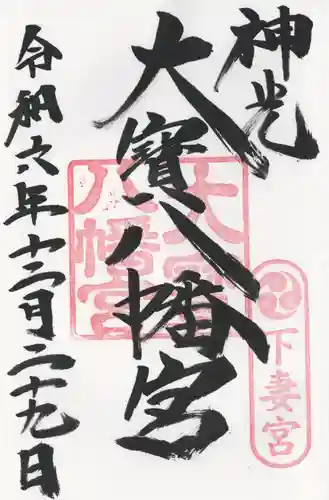 神光
大寳八幡宮
大宝八幡宮
下妻宮
令和六年十二月二十九日